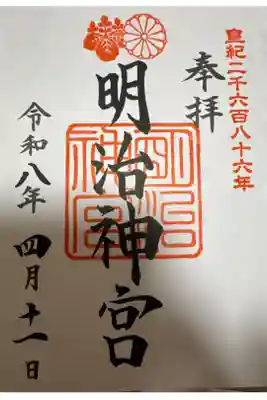 皇紀二千六百八十六年
奉拝
明治神宮
明治神宮
令和八年
四月十一日